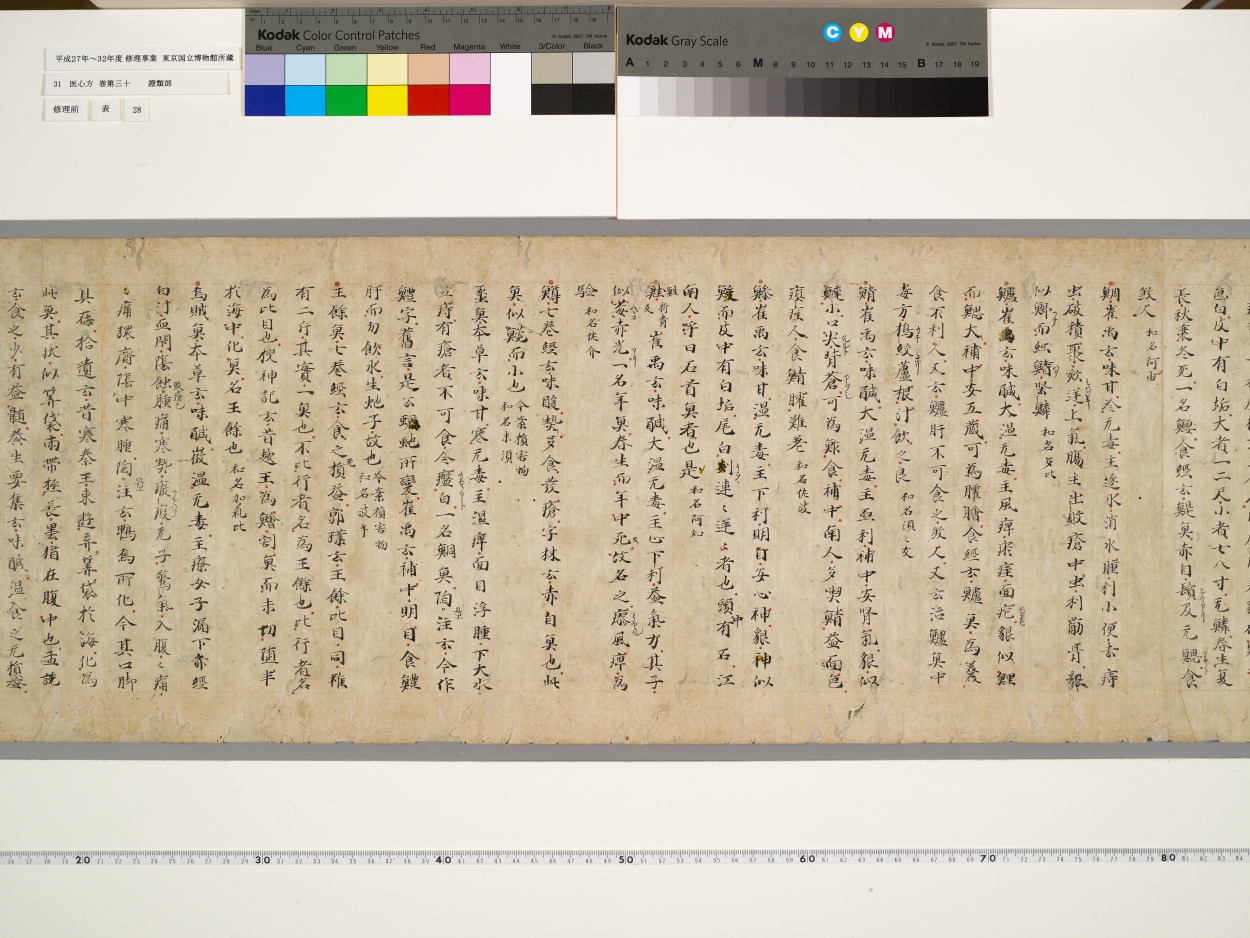 平成27年～32年度 修理事業 東京国立博物館所蔵
31 医心方 巻第三十 證類部
修理前 表 28
Kodak Color Control Patches
Blue Cyan Green Yellow Red Magenta White 3/Color Black
Kodak Gray Scale
C Y M
A 1 2 3 4 5 6 M 8 9 10 11 12 13 14 15 B 17 18 19
色白皮中有白垢大者一二尺小者七八寸无鱗春生夏
長秋衰冬死一名 食 云 魚赤目 及无鰓食
人 和名阿由
鯛崔禹云味甘冷无毒主逐水消水腫利小便去痔
虫破積聚欬逆上氣 主出 瘡中虫利筋骨貌
似鯽而紅鰭堅鱗 和名多比
鱸崔禹云味鹹大温无毒主風痺 面疱貌似鯉
而鰓大補中安五蔵可為臛膾食經云鱸魚為羹
食不利人又云鱸肝不可食之 人又云治鱸魚中
毒方搗絞蘆根汁飲之良 和名須々支
鯖崔禹云味鹹大温无毒主 利補中安腎氣貌似
鰱小口尖背蒼可為 食補中南人多 鯖益面色
人食鯖臛難老 和名佐波
崔禹云味甘温无毒主下利明目安心神貌 似
而皮中有白垢尾白刺連々逆々者也頭中有石江
南人呼曰石首魚者也是 和名阿知
鮭 崔禹云味鹹大温无毒主心下利益氣力其子
似苺赤光一名年魚春生而年中死故名之 風痺為
驗 和名佐介
鱒七巻經云味酸熱多食發瘡字林云赤目魚也此
魚似 而小也 今案損害物 和名末須
蠡魚本草云味甘寒无毒主湿痺面目浮腫下大水
云痔有瘡者不可食令瘢白一名鮦魚陶注云今作
鱧字舊言是公蠣虵所變崔禹云補中明目食鱧
肝而勿飲水生虵子故也 今案損害物 和名波牟
王餘魚七巻經云食之无損益郭璞云王餘比目同種
有二片其實一魚也不比行者名為王餘也比行者名
為比目也捜神記云昔越王為鱠割魚而未切堕半
於海中化魚名王餘也 和名加礼比
烏賊魚本草云味鹹微温无毒主療女子漏下赤經
白汁血閉陰蝕腫痛寒熱癥瘕无子驚氣入腹々痛
痛環齊陰中寒腫陶注云鴨烏所化今其口脚
具存拾遺云昔秦王東遊弃筭袋於海化為
此魚其状似筭袋両帶極長墨猶在腹中也孟詵
云食之少有益髄養生要集云味鹹温食之无損益
10 20 30 40 50 60 70 80